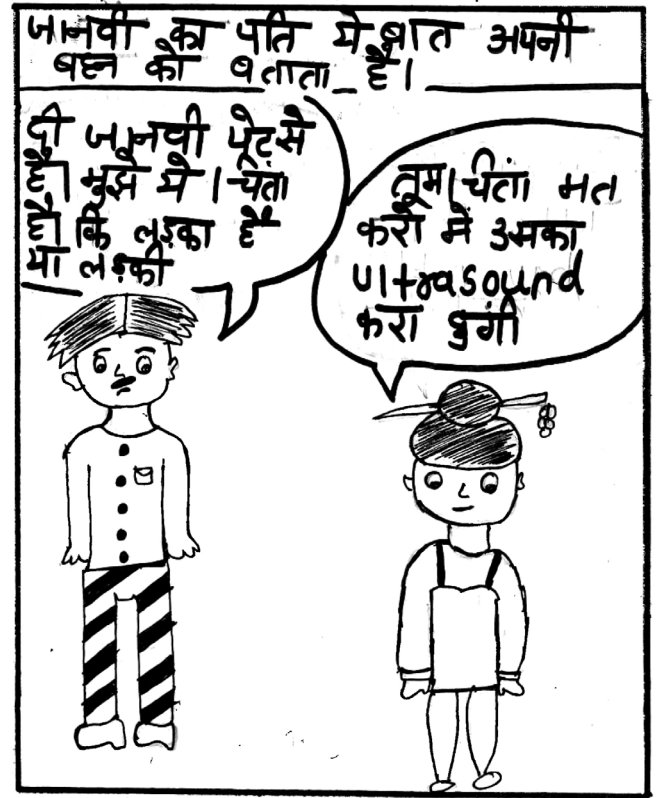 जानवी का पति ये बात अपनी
बहन को बताता है।
दी जानवी पेट से
है। मुझे ये चिंता
है। कि लड़का है
या लड़की
तुम चिंता मत
करो में उसका
Ultrasound
करा दुगीं